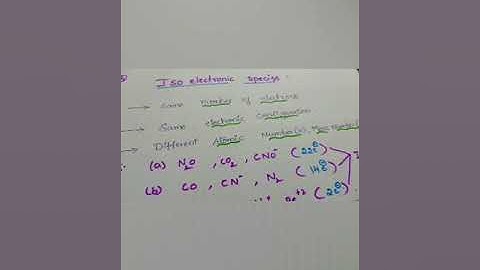 Iso electronic species.
→ Same number of electrons
→ Same electronic configuration
→ Different Atomic Number(z), Mass Number(
(a) N2O , CO2 , CNO⁻ (22e⊖)
(b) CO , CN⁻ , N2 (14e⊖)
Be⁺² (2e⊖)